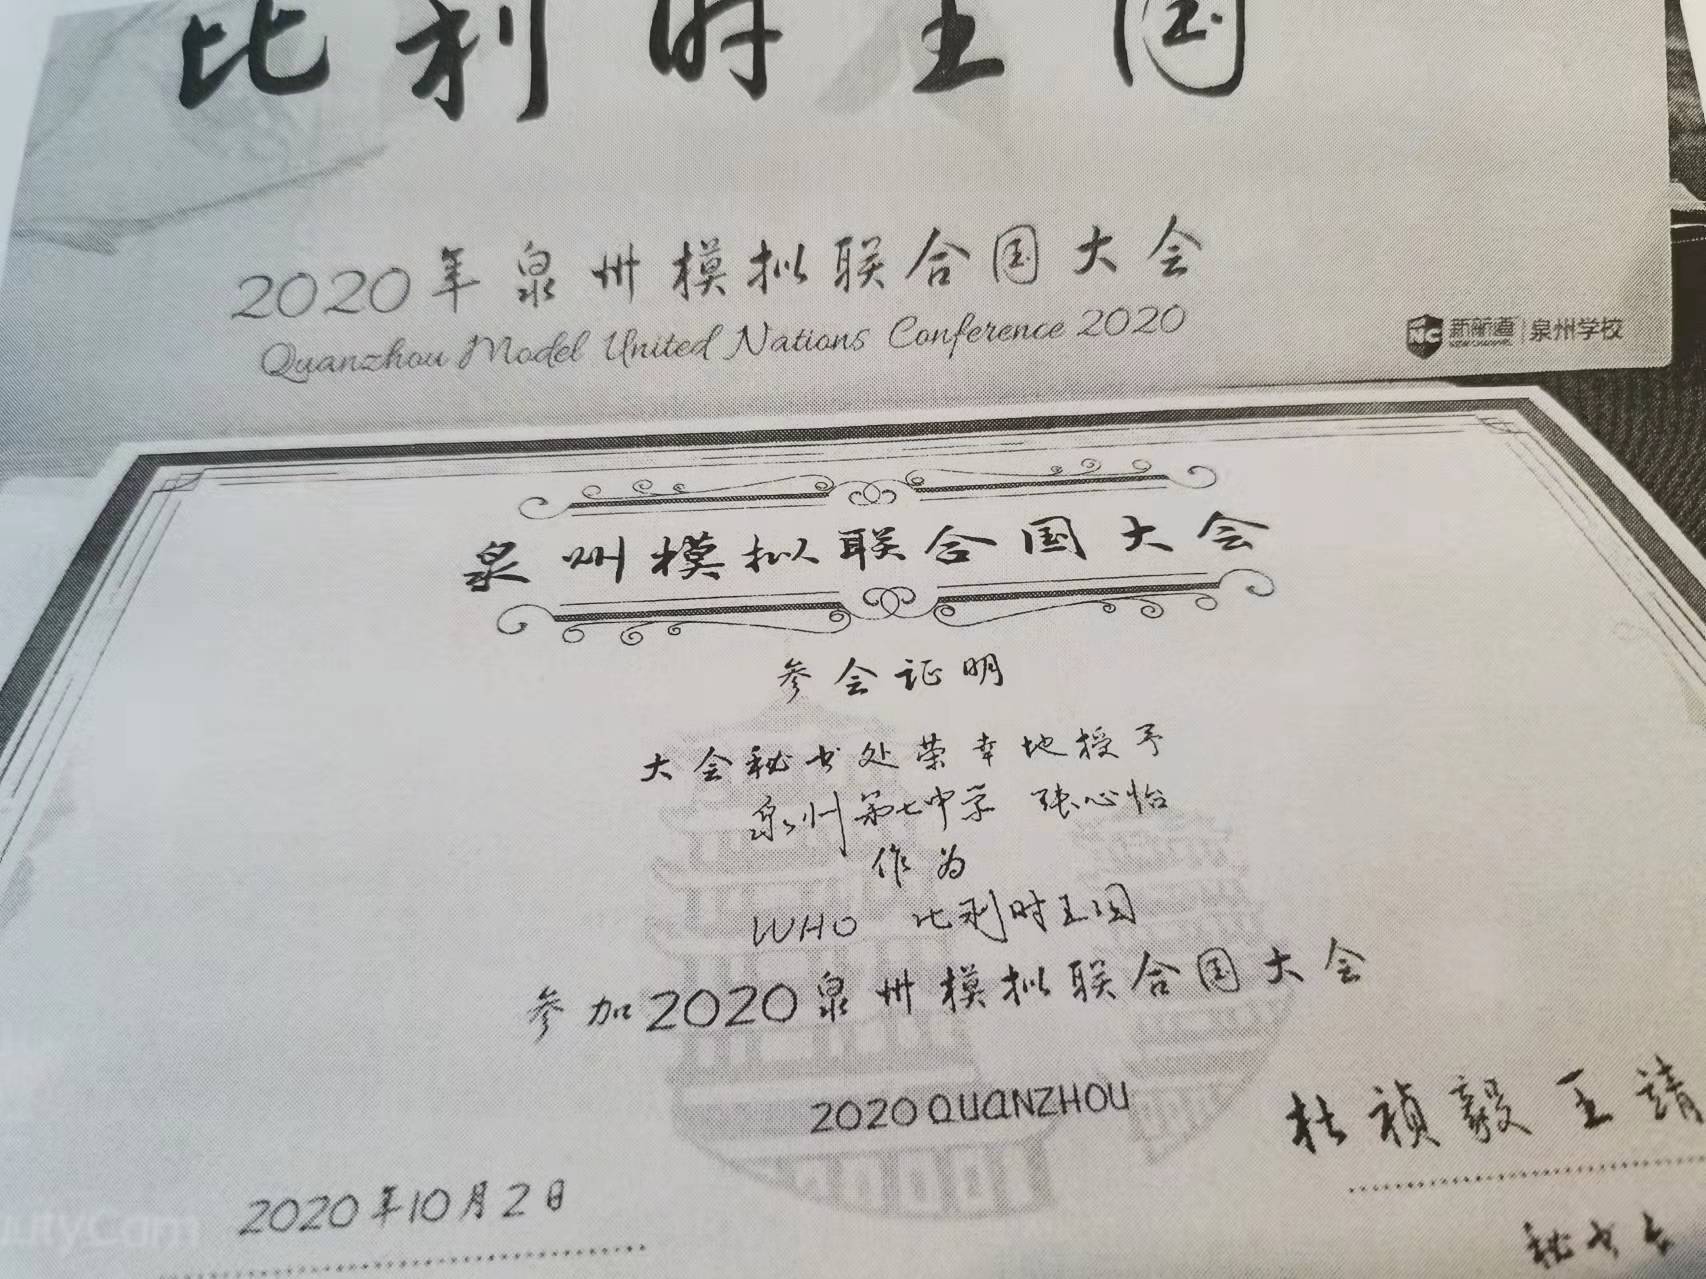 比利时王国
2020年泉州模拟联合国大会
Quanzhou Model United Nations Conference 2020
NC 新航道 NEW CHANNEL 泉州学校
泉州模拟联合国大会
参会证明
大会秘书处荣幸地授予
泉州第七中学 张心怡
作为
WHO 比利时王国
参加2020泉州模拟联合国大会
2020QUANZHOU
杜祯毅 王靖
2020年10月2日
秘书长
utyCam